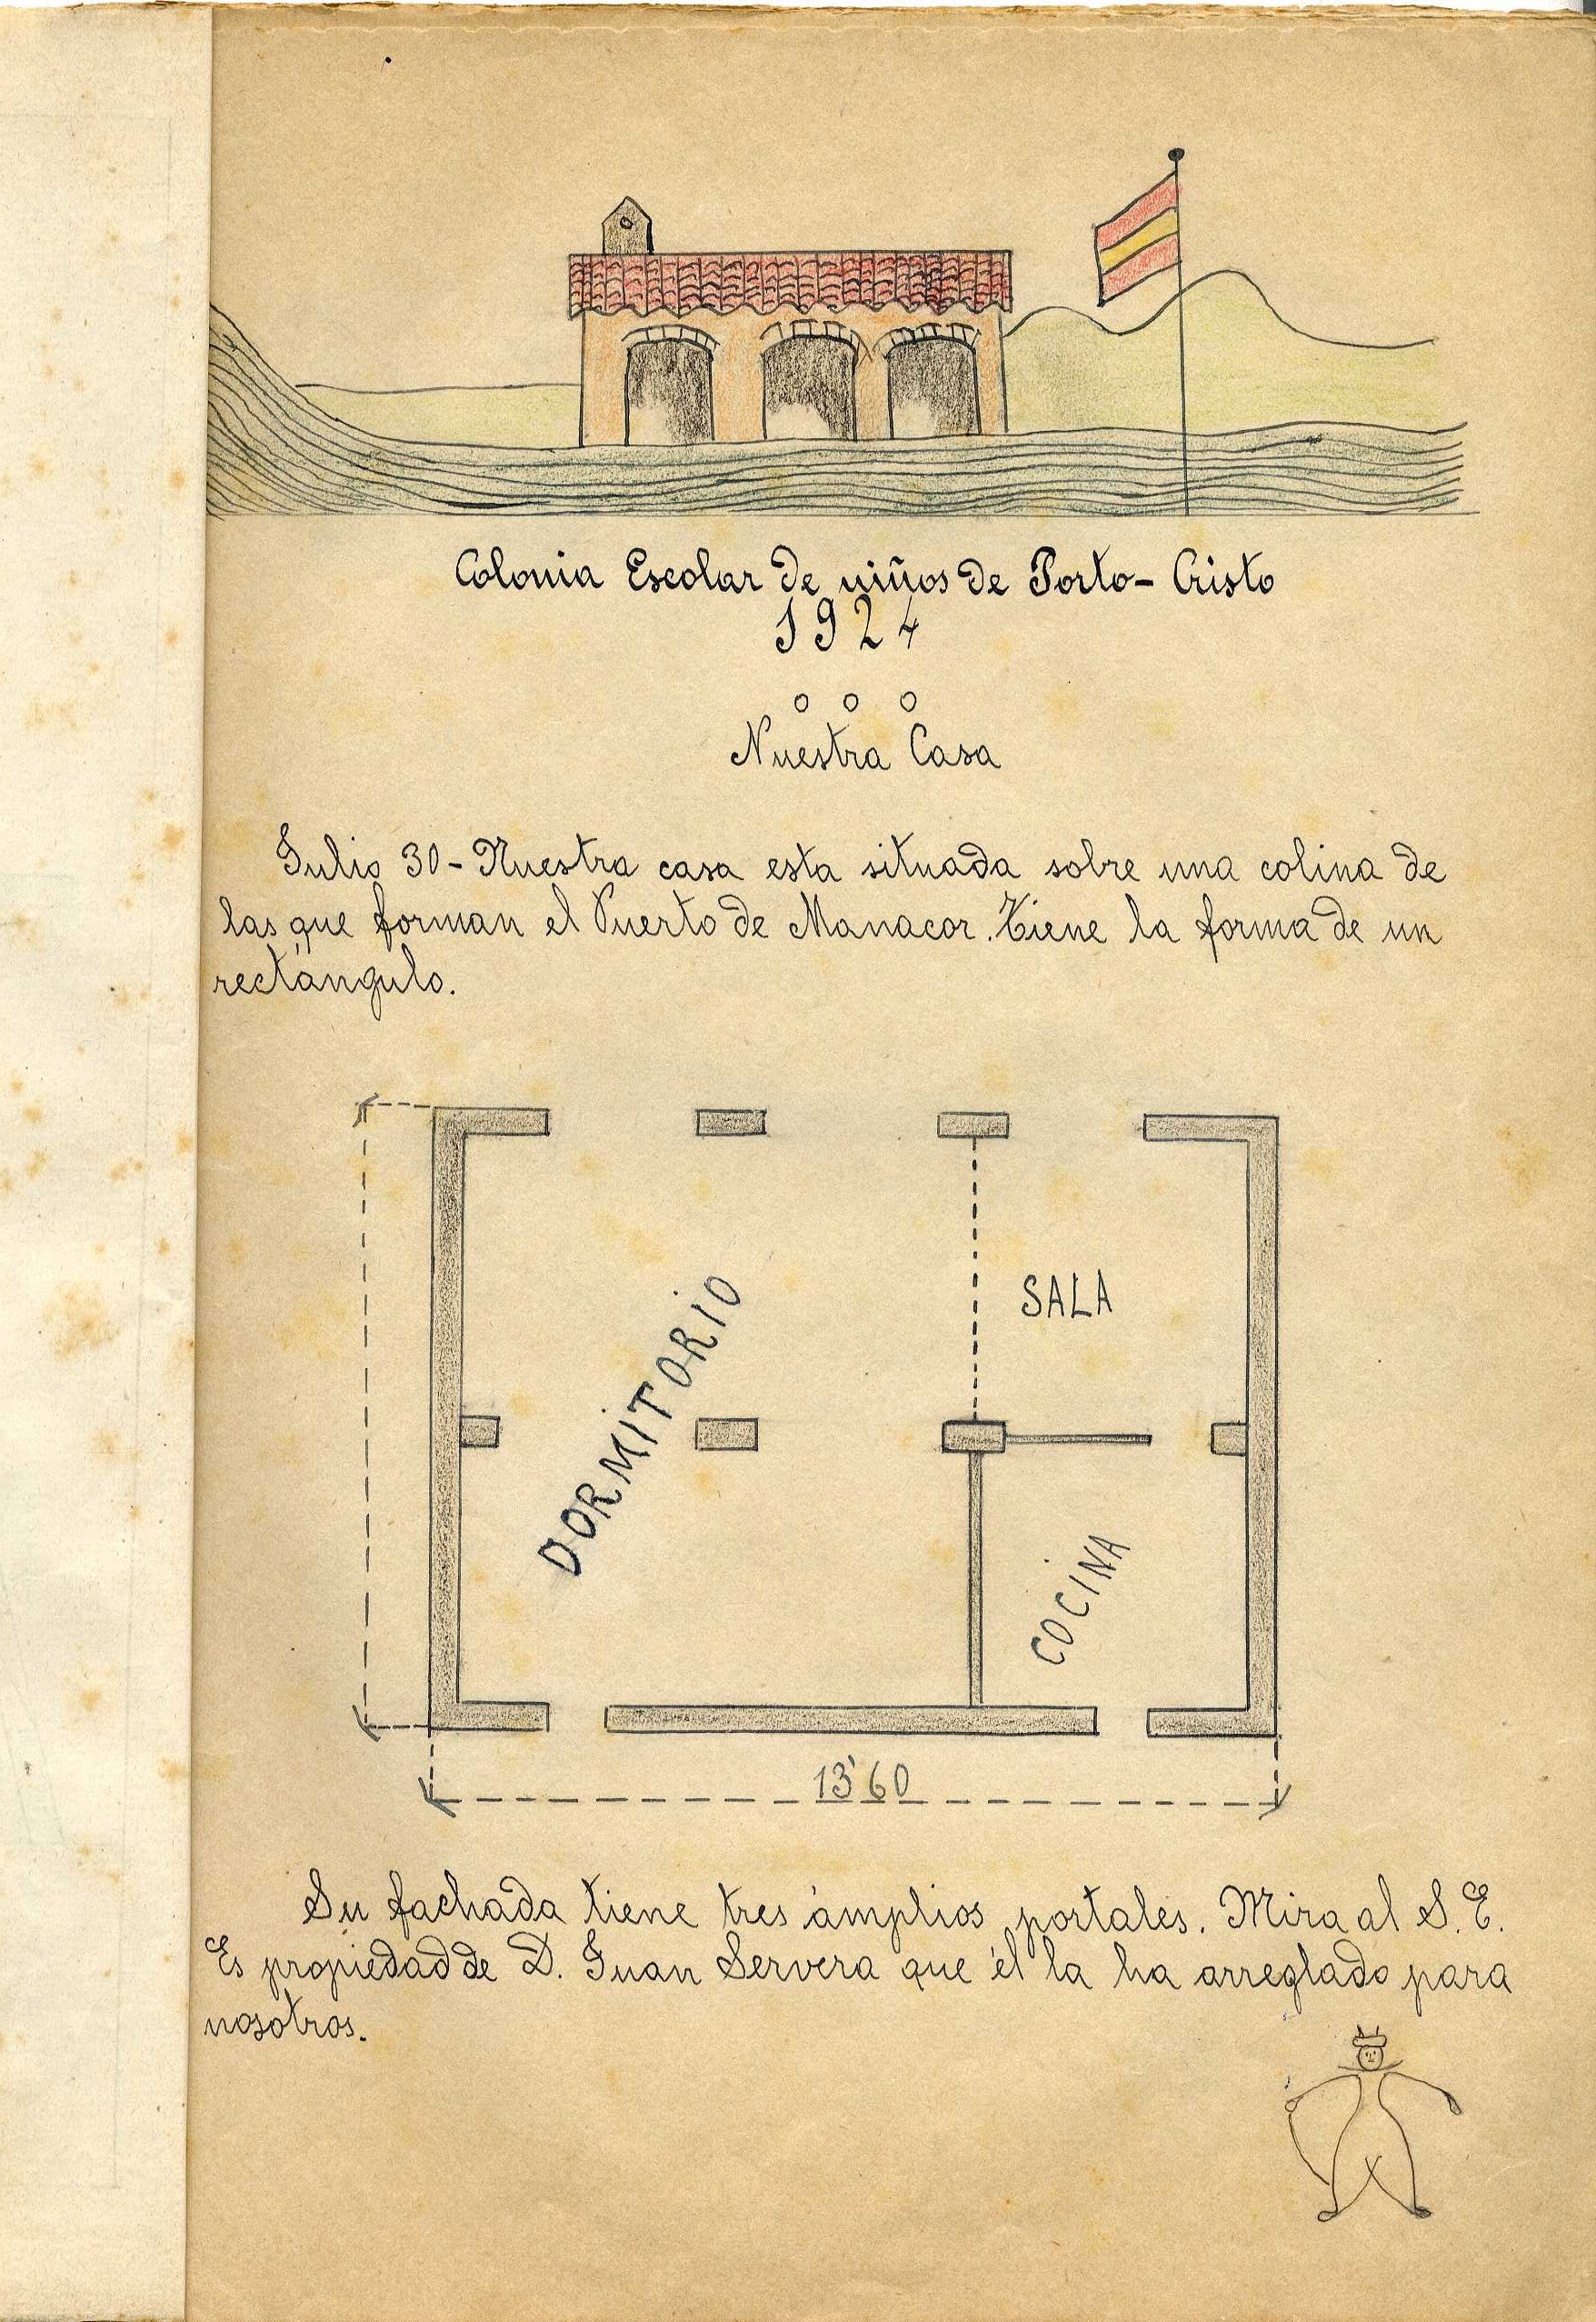 Colonia Escolar de niños de Porto-Cristo
1924
Nuestra Casa
Julio 30 - Nuestra casa esta situada sobre una colina de
las que forman el Puerto de Manacor. Tiene la forma de un
rectángulo.
SALA
DORMITORIO
COCINA
13'60
Su fachada tiene tres ámplios portales. Mira al S. E.
Es propiedad de D. Juan Servera que él la ha arreglado para
nosotros.